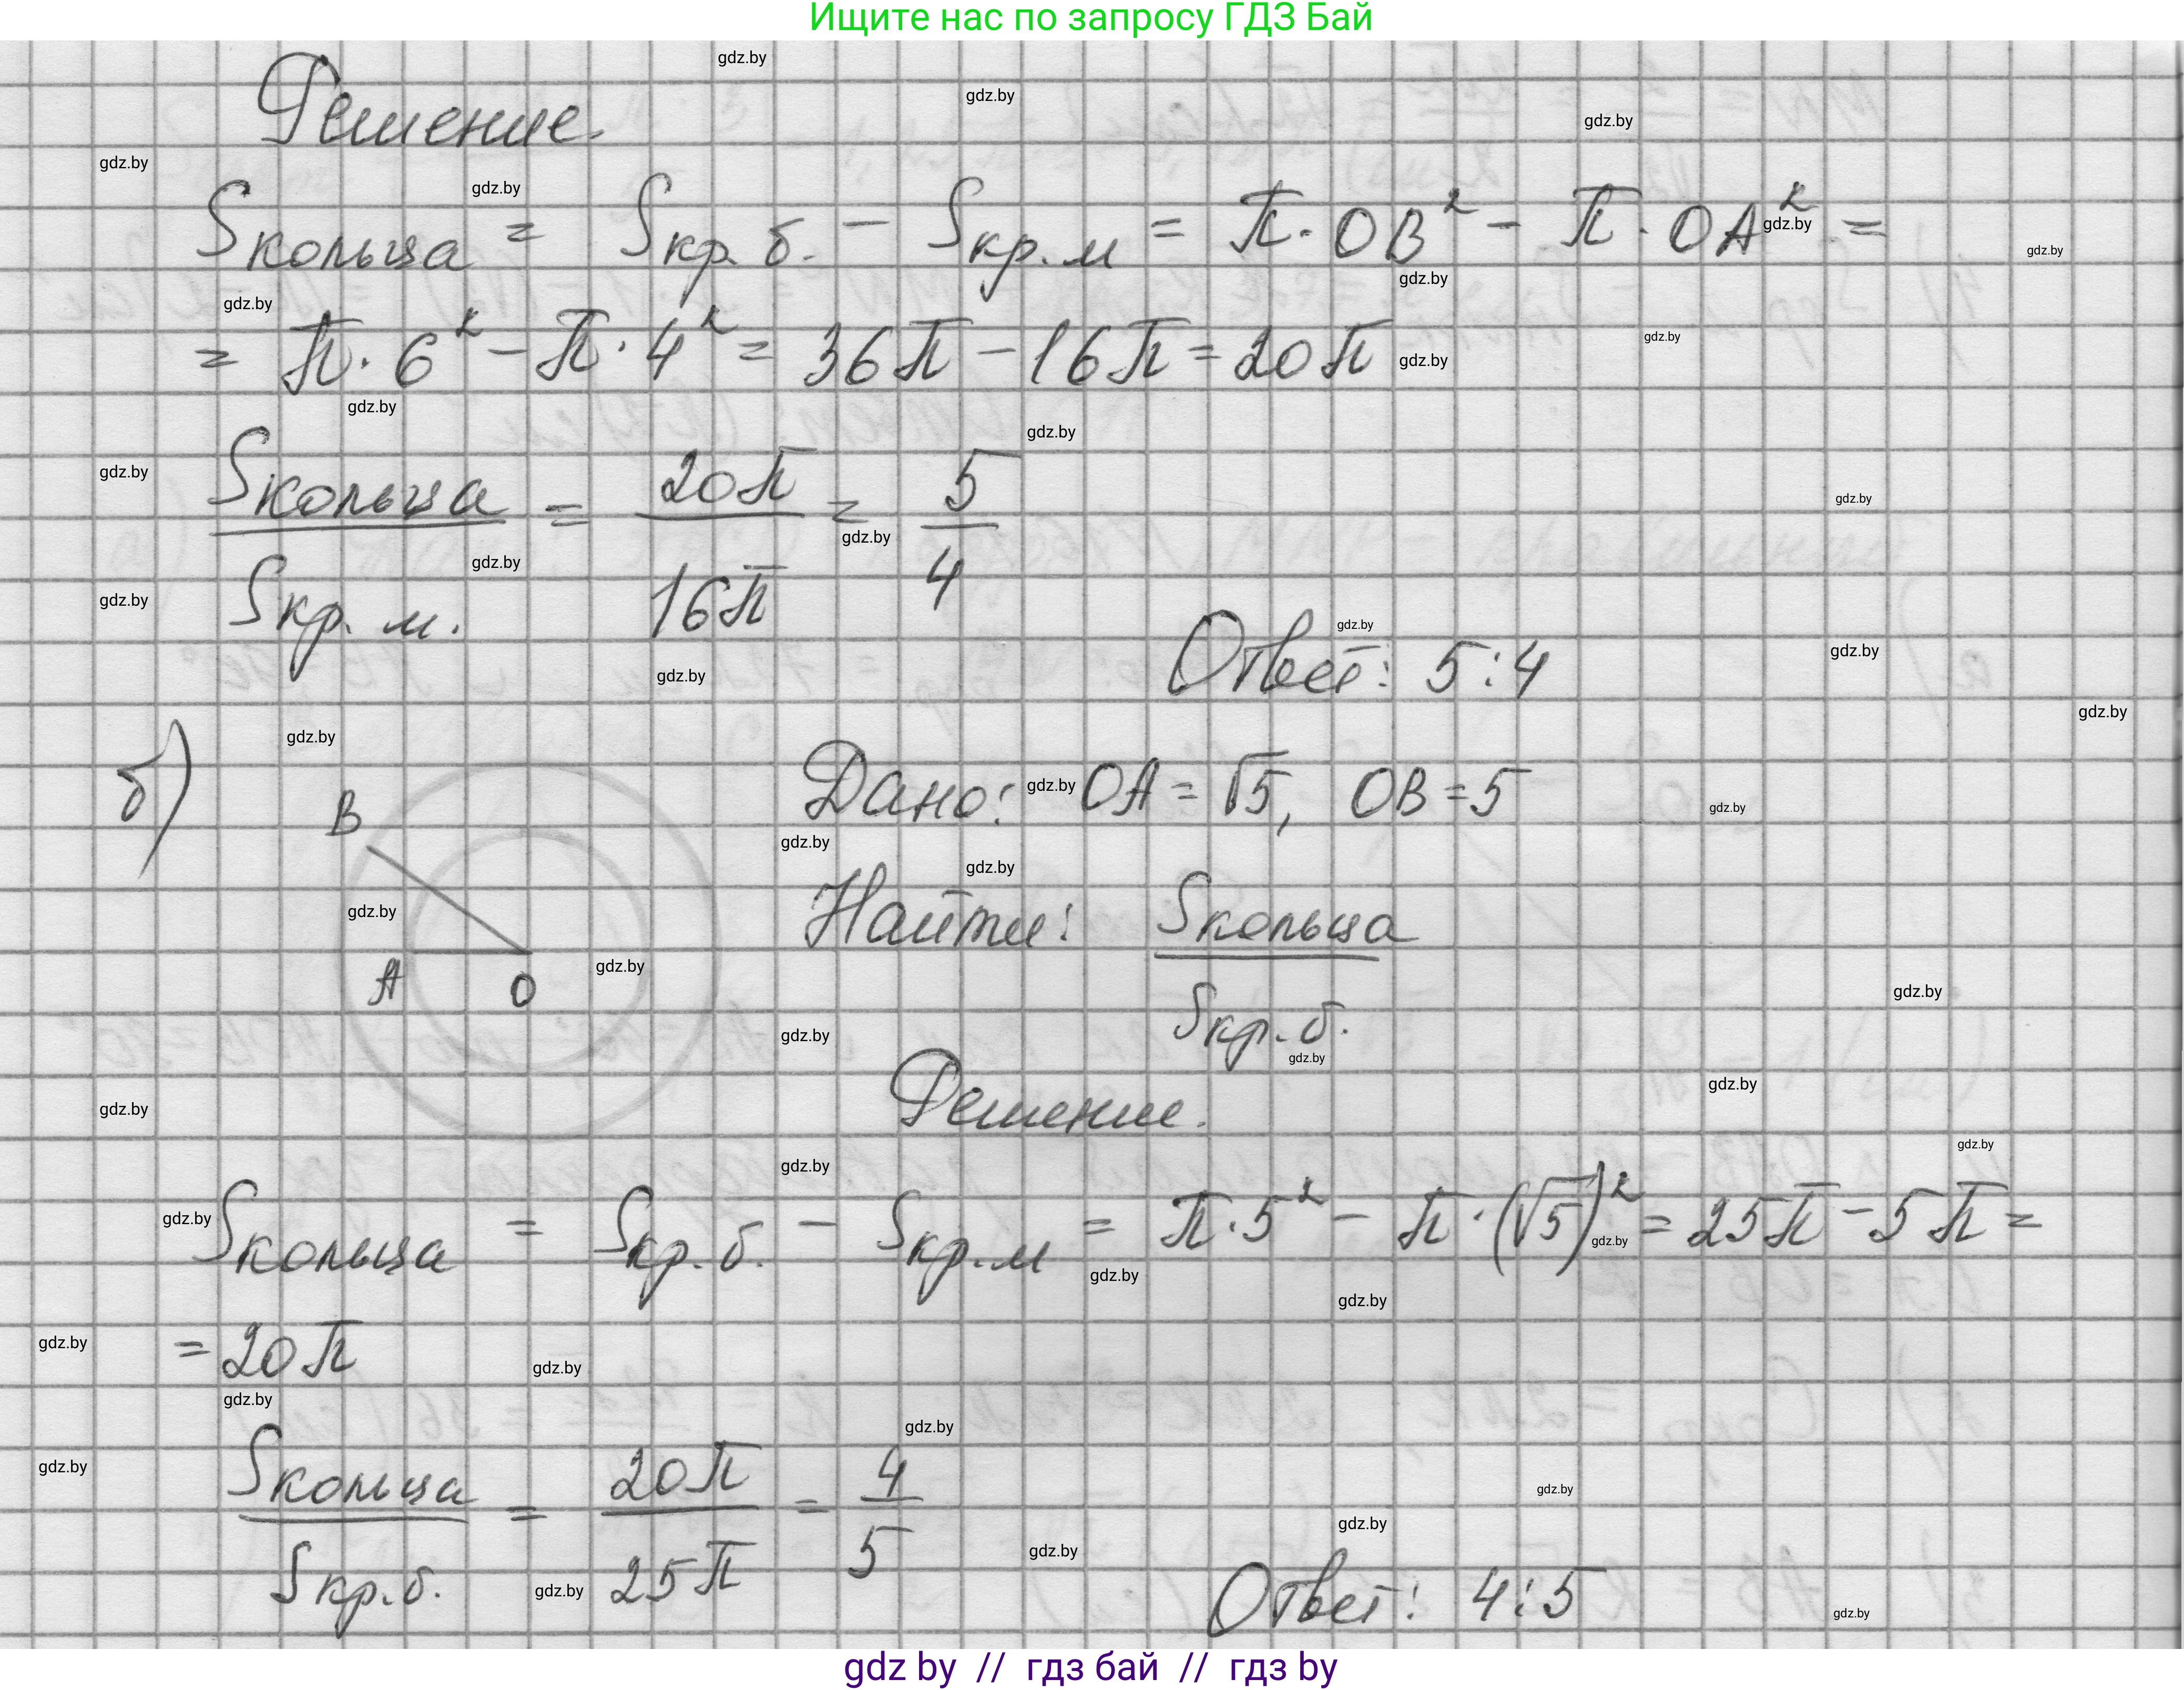 Ищите нас по запросу ГДЗ Бай
Решение.
Sкольца = Sкр.б. - Sкр.м = π·OB² - π·OA² =
= π·6² - π·4² = 36π - 16π = 20π
Sкольца / Sкр.м. = 20π / 16π = 5 / 4
Ответ: 5:4
б)
B
A
O
Дано: OA = √5, OB = 5
Найти: Sкольца / Sкр.б.
Решение.
Sкольца = Sкр.б. - Sкр.м = π·5² - π·(√5)² = 25π - 5π =
= 20π
Sкольца / Sкр.б. = 20π / 25π = 4 / 5
Ответ: 4:5
gdz by // гдз бай // гдз by